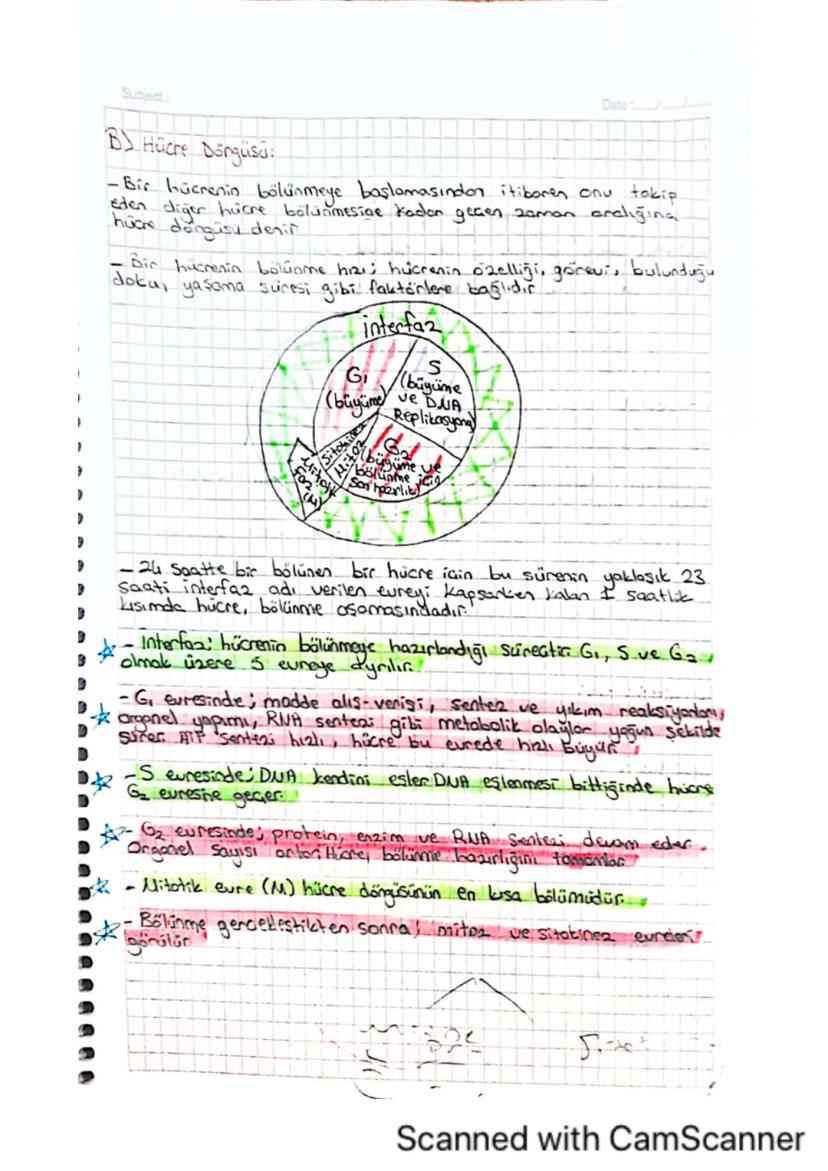 Subject:
Date :..../..../....
B) Hücre Döngüsü:
- Bir hücrenin bölünmeye başlamasından itibaren onu takip
eden diğer hücre bölünmesine kadar geçen zaman aralığına
hücre döngüsü denir
- Bir hücrenin bölünme hızı; hücrenin özelliği, görevi, bulunduğu
doku, yaşama süresi gibi faktörlere bağlıdır
interfaz
G1
(büyüme)
S
(büyüme
ve DNA
Replikasyonu)
G2
(büyüme ve
bölünme için
son hazırlık)
Sitokinez
Mitoz
Mitotik
faz (M)
- 24 saatte bir bölünen bir hücre için bu sürenin yaklaşık 23
saati interfaz adı verilen evreyi kapsarken kalan 1 saatlik
kısımda hücre, bölünme aşamasındadır.
- Interfaz; hücrenin bölünmeye hazırlandığı süreçtir G1, S ve G2
olmak üzere 3 evreye ayrılır.
- G1 evresinde; madde alış-verişi, sentez ve yıkım reaksiyonları,
organel yapımı, RNA sentezi gibi metabolik olaylar yoğun şekilde
sürer ATP sentezi hızlı, hücre bu evrede hızlı büyür.
- S evresinde; DNA kendini eşler DNA eşlenmesi bittiğinde hücre
G2 evresine geçer.
- G2 evresinde; protein, enzim ve RNA sentezi devam eder.
Organel sayısı artar. Hücre, bölünme hazırlığını tamamlar
- Mitotik evre (M) hücre döngüsünün en kısa bölümüdür.
- Bölünme gerçekleştikten sonra; mitoz ve sitokinez evreleri
görülür
Scanned with CamScanner